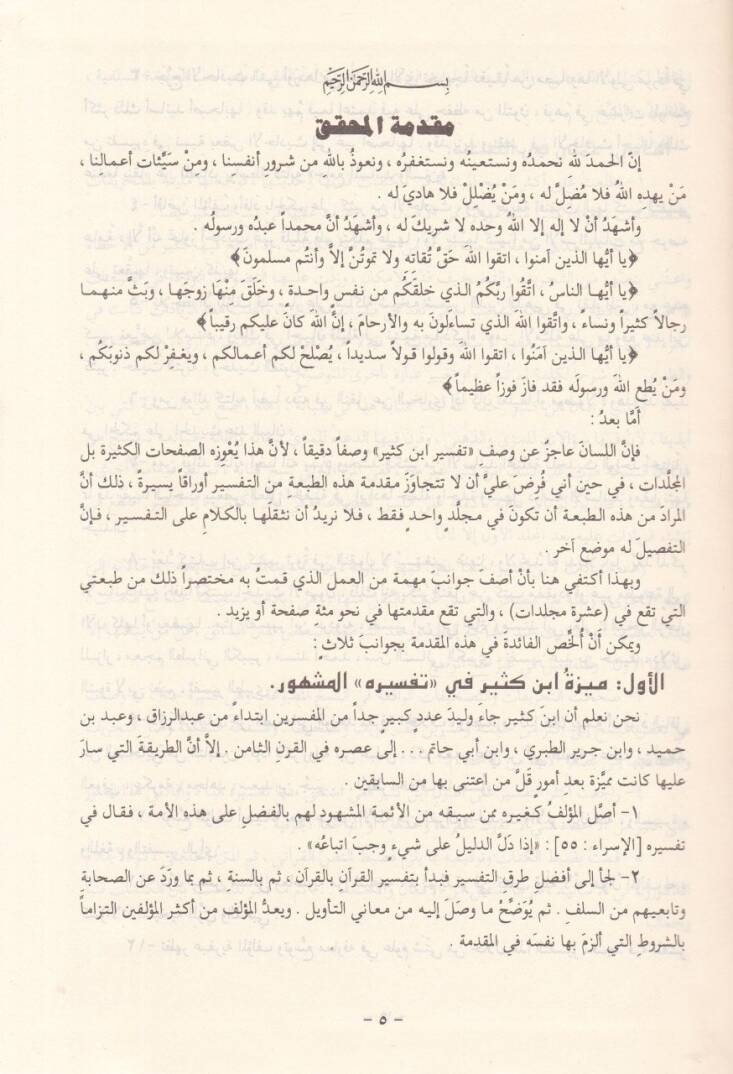 بسم الله الرحمن الرحيم
مقدمة المحقق
إنّ الحمدَ للهِ نحمدُه ونستعينُه ونستغفرُه ، ونعوذُ باللهِ من شرورِ أنفسِنا ، ومنْ سيِّئات أعمالِنا ،
مَنْ يهدِهِ اللهُ فلا مُضِلَّ له ، ومَنْ يُضْلِلْ فلا هاديَ له .
وأشهَدُ أنْ لا إله إلا اللهُ وحده لا شريكَ له ، وأشهَدُ أنَّ محمداً عبدُه ورسولُه .
﴿يا أيُّها الذين آمنوا ، اتقوا اللهَ حَقَّ تُقاتِهِ ولا تموتُنَّ إلاَّ وأنتُم مسلمونَ﴾
﴿يا أيُّها الناسُ ، اتَّقُوا ربَّكُمُ الذي خلقَكُم من نفسٍ واحدةٍ ، وخَلَقَ مِنْهَا زوجَها ، وبَثَّ منهما
رجالاً كثيراً ونساءً ، واتَّقوا اللهَ الذي تساءَلونَ به والأرحامَ ، إنَّ اللهَ كانَ عليكم رقيباً﴾
﴿يا أيُّها الذين آمَنُوا ، اتقوا اللهَ وقولوا قولاً سديداً ، يُصْلحْ لكم أعمالكم ، ويغفِرْ لكم ذنوبَكُم ،
ومَنْ يُطعِ اللهَ ورسولَه فقد فازَ فوزاً عظيماً﴾
أمّا بعدُ :
فإنَّ اللسانَ عاجزٌ عن وصفِ «تفسير ابن كثير» وصفاً دقيقاً ، لأنَّ هذا يُعْوِزه الصفحات الكثيرة بل
المجلّدات ، في حين أني فُرِضَ عليَّ أن لا تتجاوَزَ مقدمة هذه الطبعةِ من التفسير أوراقاً يسيرةً ، ذلك أنَّ
المرادَ من هذه الطبعة أن تكونَ في مجلَّدٍ واحدٍ فقط ، فلا نريدُ أن نثقلَها بالكلامِ على التفسيرِ ، فإنَّ
التفصيلَ له موضع آخر .
وبهذا أكتفي هنا بأنْ أصفَ جوانبَ مهمة من العمل الذي قمتُ به مختصراً ذلك من طبعتي
التي تقع في (عشرة مجلدات) ، والتي تقع مقدمتها في نحو مئةِ صفحة أو يزيد .
ويمكن أنْ أُلخِّص الفائدةَ في هذه المقدمة بجوانبَ ثلاثٍ :
الأول: ميزةُ ابن كثير في «تفسيره» المشهور.
نحن نعلم أن ابنَ كثير جاءَ وليدَ عددٍ كبيرٍ جداً من المفسرين ابتداءً من عبدالرزاق ، وعبد بن
حميد ، وابن جرير الطبري ، وابن أبي حاتم ... إلى عصره في القرنِ الثامن . إلاَّ أنَّ الطريقةَ التي سارَ
عليها كانت مميَّزة بعدِ أمورٍ قلَّ من اعتنى بها من السابقين .
١- أصَّل المؤلفُ كغيره ممن سبقه من الأئمة المشهود لهم بالفضلِ على هذه الأمة ، فقال في
تفسيره [الإسراء : ٥٥] : «إذا دَلَّ الدليلُ على شيءٍ وجبَ اتباعُه» .
٢- لجأ إلى أفضلِ طرقِ التفسير فبدأ بتفسير القرآنِ بالقرآن ، ثم بالسنةِ ، ثم بما ورَدَ عن الصحابةِ
وتابعيهم من السلفِ . ثم يُوَضَّحُ ما وصلَ إليه من معاني التأويل . ويعدُّ المؤلف من أكثر المؤلفين التزاماً
بالشروطِ التي ألزمَ بها نفسَه في المقدمة .
- ٥ -